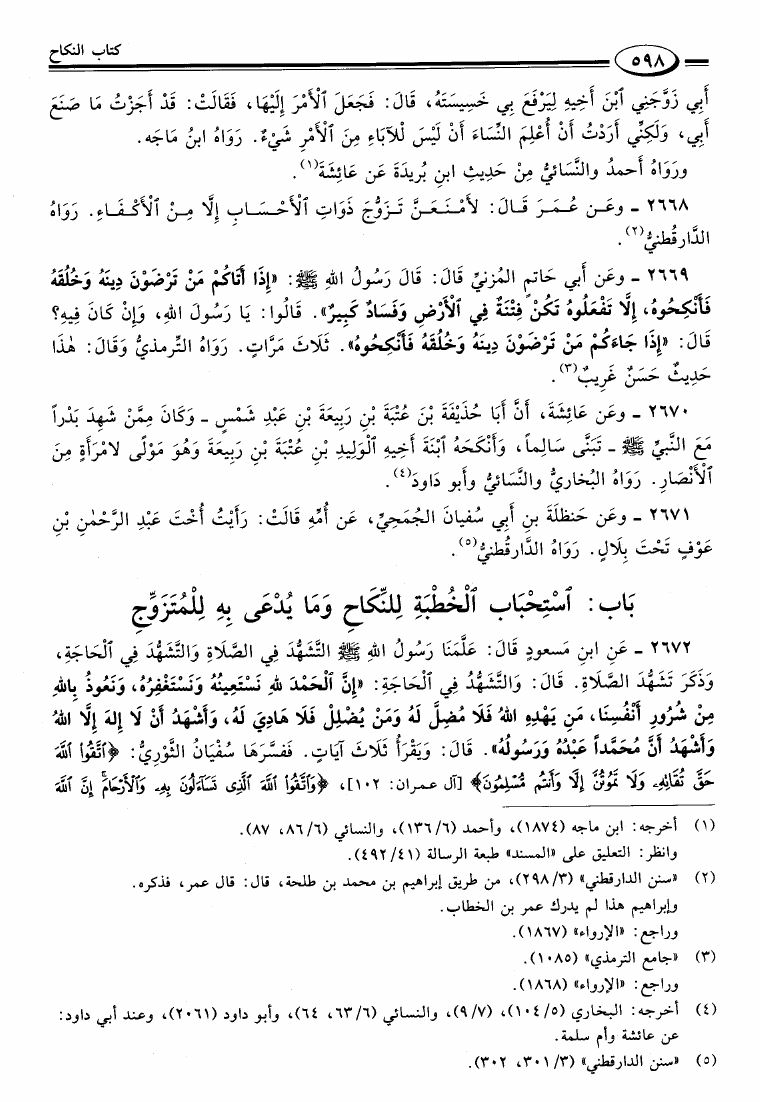 ٥٩٨ كتاب النكاح
أَبِي زَوَّجَنِي ٱبْنَ أَخِيهِ لِيَرْفَعَ بِي خَسِيسَتَهُ، قَالَ: فَجَعَلَ ٱلْأَمْرَ إِلَيْهَا، فَقَالَتْ: قَدْ أَجَزْتُ مَا صَنَعَ
أَبِي، وَلَكِنِّي أَرَدْتُ أَنْ أُعْلِمَ النِّسَاءَ أَنْ لَيْسَ لِلْآبَاءِ مِنَ ٱلْأَمْرِ شَيْءٌ. رَوَاهُ ابنُ مَاجَه.
ورَوَاهُ أحمدُ والنَّسَائيُّ مِنْ حَدِيثِ ابنِ بُرَيدَةَ عَن عَائِشَةَ(١).
٢٦٦٨ ـ وعَن عُمَرَ قَالَ: لَأَمْنَعَنَّ تَزَوُّجَ ذَوَاتِ ٱلْأَحْسَابِ إِلَّا مِنْ ٱلْأَكْفَاءِ. رَوَاهُ
الدَّارقُطنيُّ(٢).
٢٦٦٩ ـ وعَن أبي حَاتمٍ المُزنيِّ قَالَ: قَالَ رَسُولُ اللهِ ﷺ: «إِذَا أَتَاكُمْ مَنْ تَرْضَوْنَ دِينَهُ وَخُلُقَهُ
فَأَنْكِحُوهُ، إِلَّا تَفْعَلُوهُ تَكُنْ فِتْنَةٌ فِي ٱلْأَرْضِ وَفَسَادٌ كَبِيرٌ». قَالُوا: يَا رَسُولَ اللهِ، وَإِنْ كَانَ فِيهِ؟
قَالَ: «إِذَا جَاءَكُمْ مَنْ تَرْضَوْنَ دِينَهُ وَخُلُقَهُ فَأَنْكِحُوهُ». ثَلَاثَ مَرَّاتٍ. رَوَاهُ التِّرمذيُّ وَقَالَ: هٰذَا
حَدِيثٌ حَسَنٌ غَرِيبٌ(٣).
٢٦٧٠ ـ وعَن عَائِشَةَ، أَنَّ أَبَا حُذَيْفَةَ بْنَ عُتْبَةَ بْنِ رَبِيعَةَ بْنِ عَبْدِ شَمْسٍ ـ وَكَانَ مِمَّنْ شَهِدَ بَدْراً
مَعَ النَّبيِّ ﷺ ـ تَبَنَّى سَالِماً، وَأَنْكَحَهُ ٱبْنَةَ أَخِيهِ ٱلْوَلِيدِ بْنِ عُتْبَةَ بْنِ رَبِيعَةَ وَهُوَ مَوْلًى لامْرَأَةٍ مِنَ
ٱلْأَنْصَارِ. رَوَاهُ البُخاريُّ والنَّسَائيُّ وأبو دَاودَ(٤).
٢٦٧١ ـ وعَن حَنظلَةَ بنِ أبي سُفيانَ الجُمَحِيِّ، عَن أُمِّهِ قَالَتْ: رَأَيْتُ أُخْتَ عَبْدِ الرَّحْمٰنِ بْنِ
عَوْفٍ تَحْتَ بِلَالٍ. رَوَاهُ الدَّارقُطنيُّ(٥).
بَاب: ٱسْتِحْبَابِ ٱلْخُطْبَةِ لِلنِّكَاحِ وَمَا يُدْعَى بِهِ لِلْمُتَزَوِّجِ
٢٦٧٢ ـ عَنِ ابنِ مَسعودٍ قَالَ: عَلَّمَنَا رَسُولُ اللهِ ﷺ التَّشَهُّدَ فِي الصَّلَاةِ وَالتَّشَهُّدَ فِي ٱلْحَاجَةِ،
وَذَكَرَ تَشَهُّدَ الصَّلَاةِ. قَالَ: وَالتَّشَهُّدُ فِي ٱلْحَاجَةِ: «إِنَّ ٱلْحَمْدَ لله نَسْتَعِينُهُ وَنَسْتَغْفِرُهُ، وَنَعُوذُ بِاللهِ
مِنْ شُرُورِ أَنْفُسِنَا، مَن يَهْدِهِ اللهُ فَلَا مُضِلَّ لَهُ وَمَنْ يُضْلِلْ فَلَا هَادِيَ لَهُ، وَأَشْهَدُ أَنْ لَا إِلهَ إِلَّا اللهُ
وَأَشْهَدُ أَنَّ مُحَمَّداً عَبْدُهُ وَرَسُولُهُ». قَالَ: وَيَقْرَأُ ثَلَاثَ آيَاتٍ. فَفسَّرَهَا سُفْيَانُ الثَّوْرِيُّ: ﴿ٱتَّقُوا۟ ٱللَّهَ
حَقَّ تُقَاتِهِۦ وَلَا تَمُوتُنَّ إِلَّا وَأَنتُم مُّسْلِمُونَ﴾ [آل عمران: ١٠٢]، ﴿وَٱتَّقُوا۟ ٱللَّهَ ٱلَّذِى تَسَآءَلُونَ بِهِۦ وَٱلْأَرْحَامَۚ إِنَّ ٱللَّهَ
(١) أخرجه: ابن ماجه (١٨٧٤)، وأحمد (١٣٦/٦)، والنسائي (٨٦/٦، ٨٧).
وانظر: التعليق على «المسند» طبعة الرسالة (٤٩٢/٤١).
(٢) «سنن الدارقطني» (٢٩٨/٣)، من طريق إبراهيم بن محمد بن طلحة، قال: قال عمر، فذكره.
وإبراهيم هذا لم يدرك عمر بن الخطاب.
وراجع: «الإرواء» (١٨٦٧).
(٣) «جامع الترمذي» (١٠٨٥).
وراجع: «الإرواء» (١٨٦٨).
(٤) أخرجه: البخاري (١٠٤/٥)، (٩/٧)، والنسائي (٦٣/٦، ٦٤)، وأبو داود (٢٠٦١)، وعند أبي داود:
عن عائشة وأم سلمة.
(٥) «سنن الدارقطني» (٣٠١/٣، ٣٠٢).